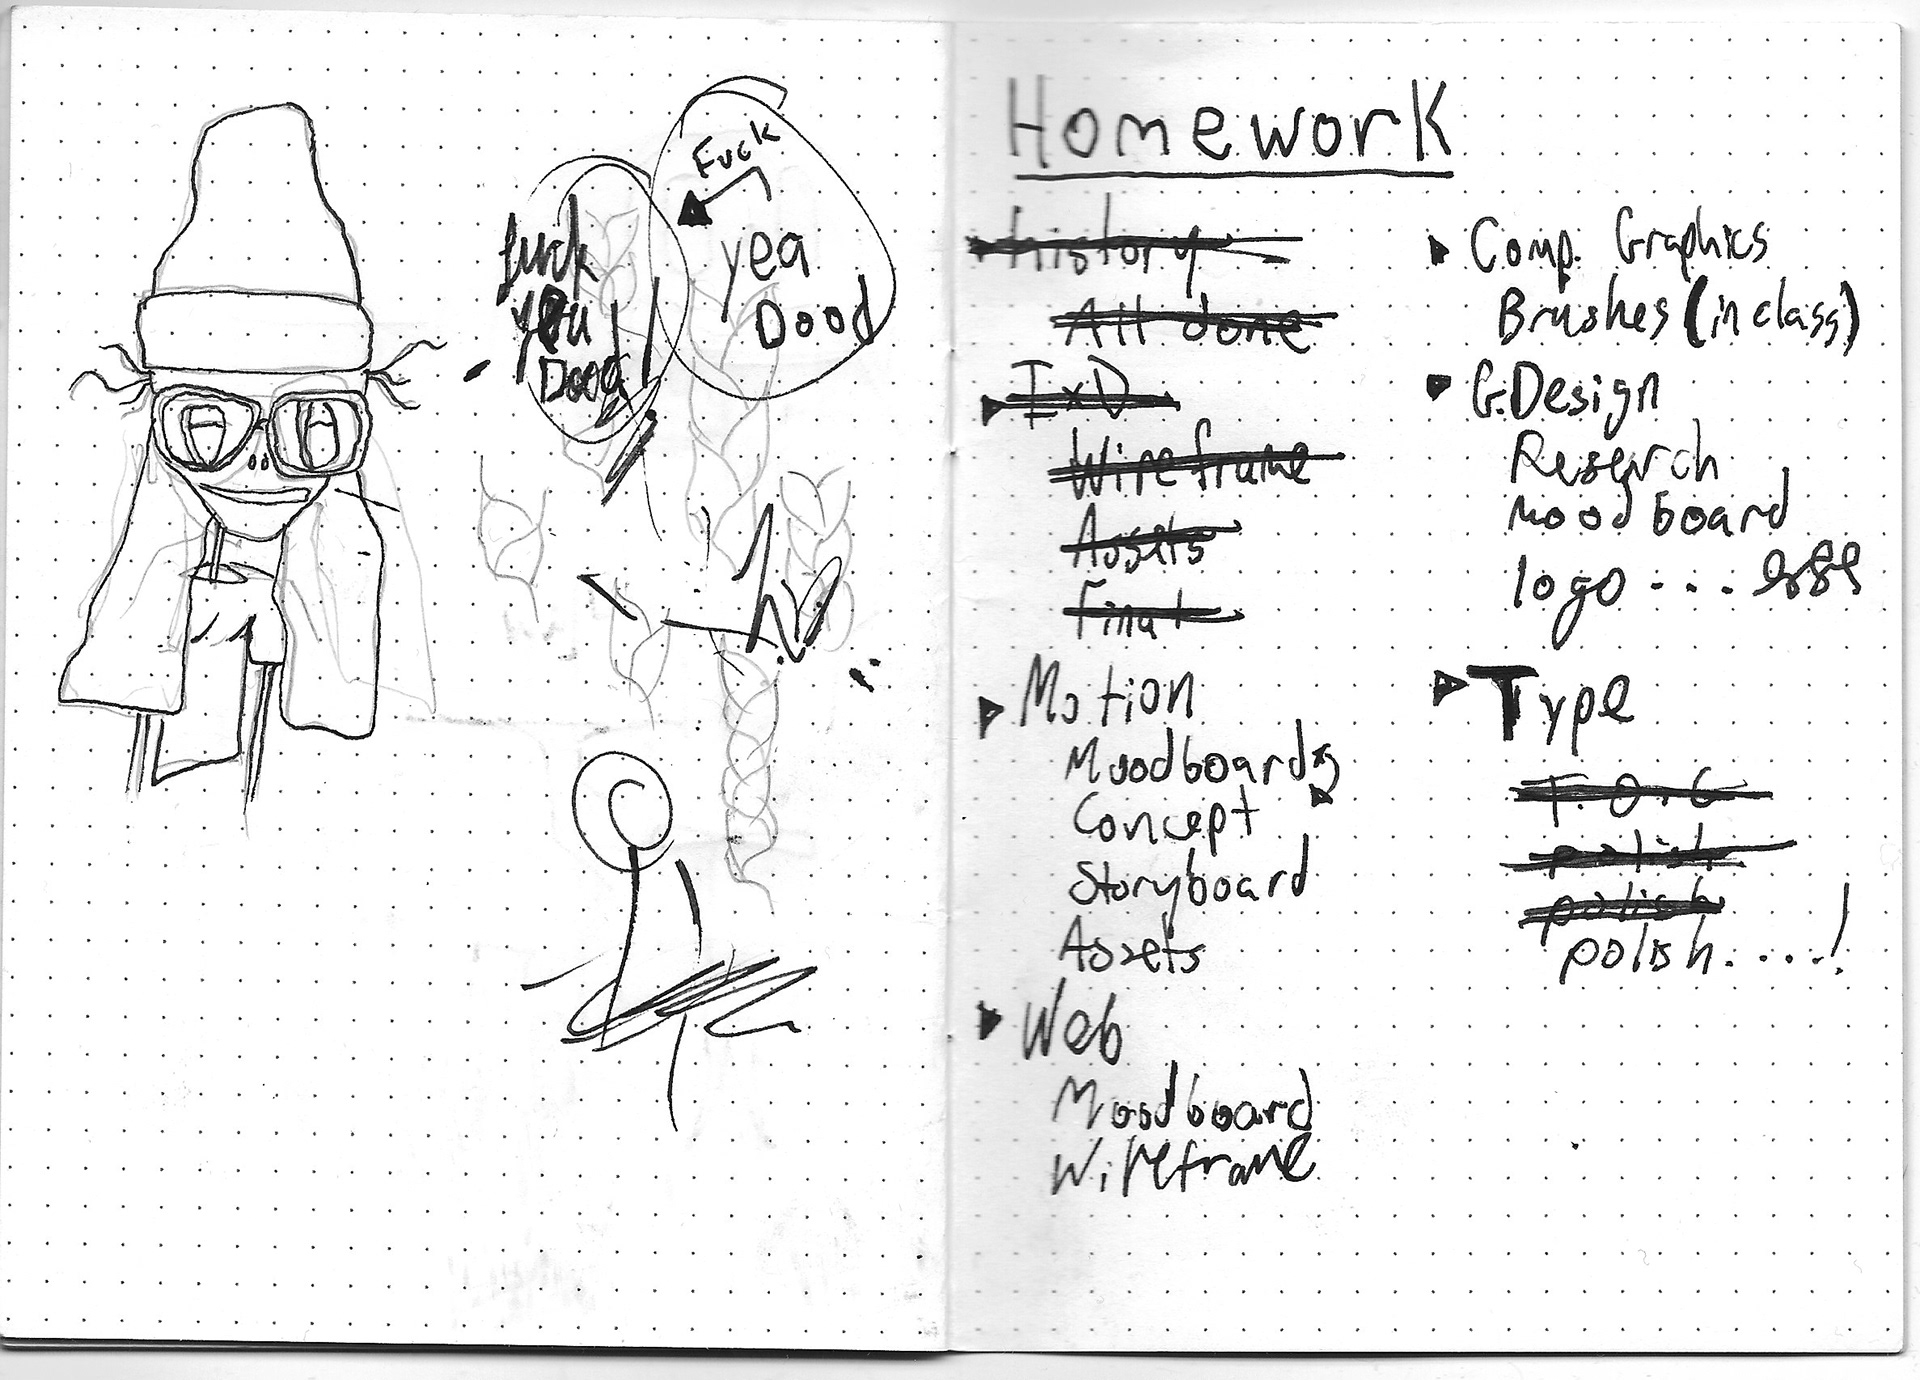 Fuck
yea
Dood
fuck
you
Dood
Homework
History
All done
IxD
Wireframe
Assets
Final
Motion
Moodboards
Concept
Storyboard
Assets
Web
Moodboard
Wireframe
Comp. Graphics
Brushes (in class)
G.Design
Research
Moodboard
logo ...
Type
T.O.C
polish
polish
polish.....!